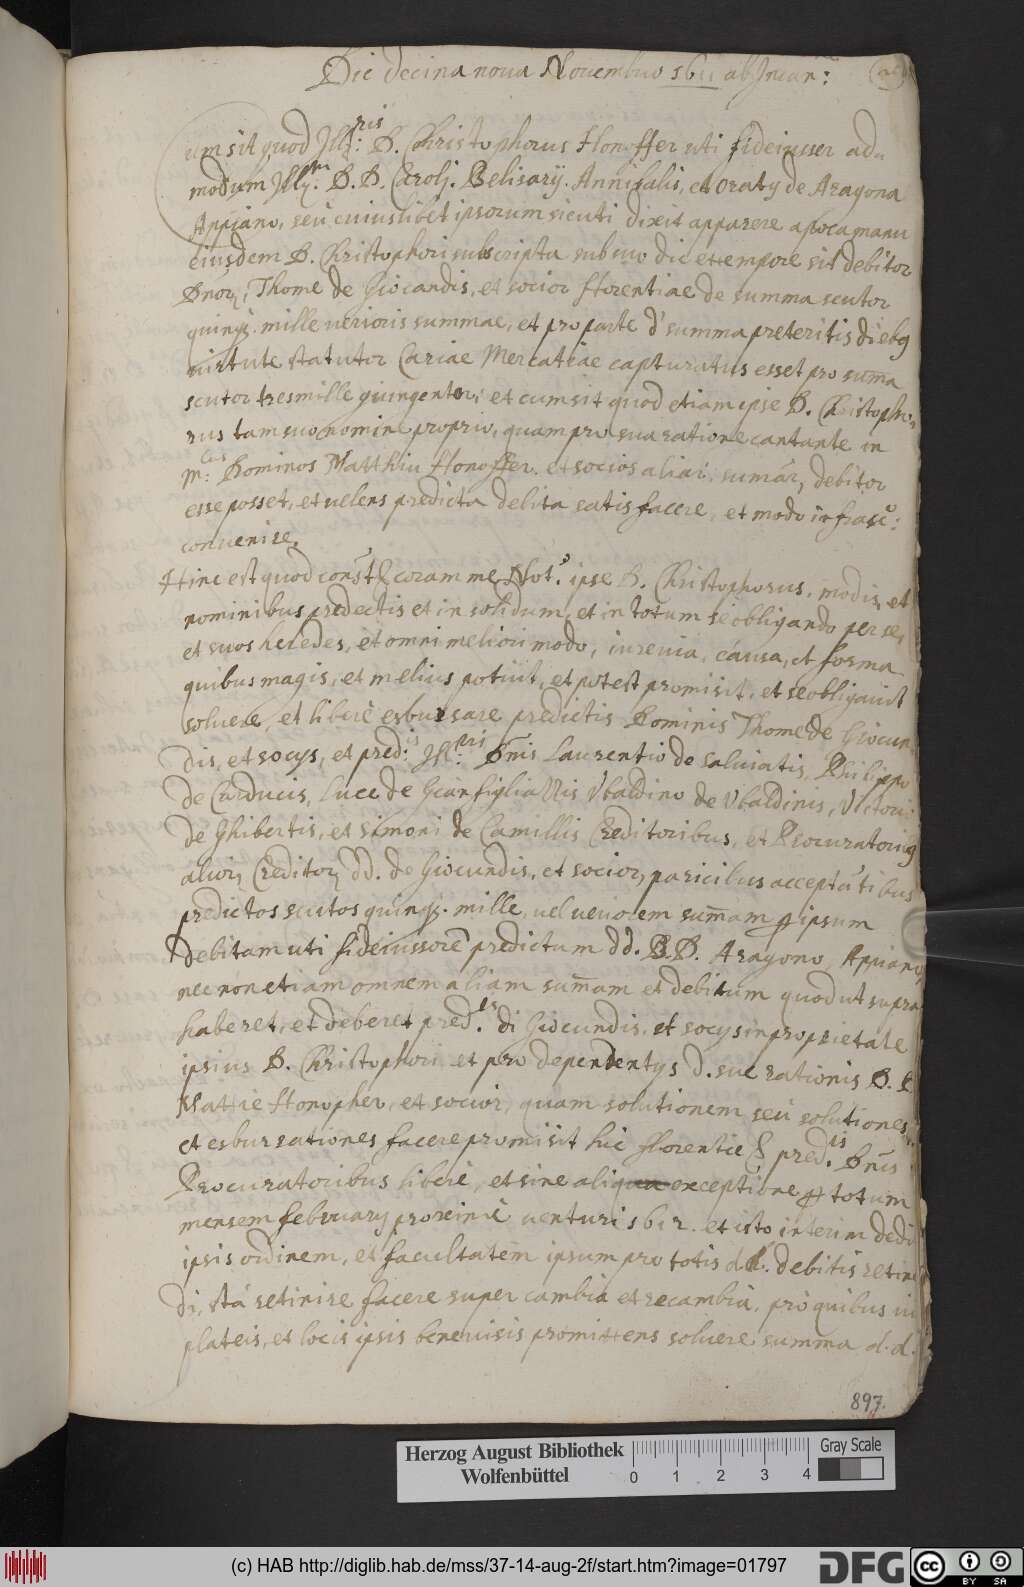 Die decina nona Novembris 1611 ab Incar:
um sit quod Ill:ris D. Christophorus Honoffer uti fideiusser ad
modum Ill:rm D. D. Carolj. Belisarij. Annibalis, et oratij de Aragona
Appiano, seu cuiuslibet ipsorum sicuti dixit apparere apoca manu
eiusdem D. Christophori subscripta sub suo die et tempore sit debitor
Dnor, Thome de Giocandis, et socior florentiae de summa scutor
quinq. mille verioris summae, et pro parte d' summa preteritis diebq
virtute statutor Cariae Mercatiae capturatus esset pro suma
scutor tresmille quingentor, et cum sit quod etiam ipse D. Christopho-
rus tam suo nomine proprio, quam pro sua ratione cantante in
M:cis Dominos Matthiu Honoffer. et socios aliar. sumar, debitor
esse posset, et velens predicta debita satisfacere, et modo infrasc:
convenire,
Hinc est quod const coram me Not. ipse D. Christophorus, modis, et
nominibus predectis et in solidum, et in totum se obligando per se,
et suos heredes, et omni meliori modo, iure via, causa, et forma
quibus magis, et melius potuit, et potest promisit, et se obligavit
solvere, et liberè esbursare predictis Dominis Thome de Giocun-
dis, et socys, et pred:is Ill:ris Dnis Laurentio de Salviatis, Philippo
de Carducis, Luce de Gianfigliazzis Ubaldino de Ubaldinis, Victorio
de Ghibertis, et Simoni de Camillis Creditoribus, et Procuratoribq
alior, Creditor, dd. de Giocundis, et socior, paricibus acceptātibus
predictos scutos quinq. mille, vel veriorem sumam ꝑ ipsum
debitam uti fideiussorē predictum dd. D. D. Aragono, Appiano,
nec non etiam omnem aliam sumam et debitum quod ut supra
haberet, et deberet pred.is di Giocundis, et socys in proprietate
ipsius D. Christophori et pro dependentys d. sue rationis D. D.
Mattie Honopher, et socior, quam solutionem seu solutiones,
et esbursationes facere promisit hic florentie pred.is Dnis
Procuratoribus liberè, et sine aliqua exceptione ꝑ totum
mensem february proximè venturi 1612. et isto interim dedit
ipsis ordinem, et facultatem ipsum pro totis dd. debitis retine
di, stá retinire facere super cambia et recambia, pro quibus in
plateis, et locis ipsis benevisis promittens solvere summa d. d.
897.
Herzog August Bibliothek
Wolfenbüttel
0 1 2 3 4
Gray Scale
(c) HAB http://diglib.hab.de/mss/37-14-aug-2f/start.htm?image=01797
DFG
cc BY SA